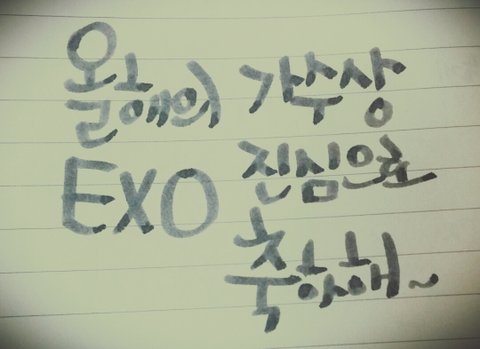 올해의 가수상
EXO 진심으로
축하해~